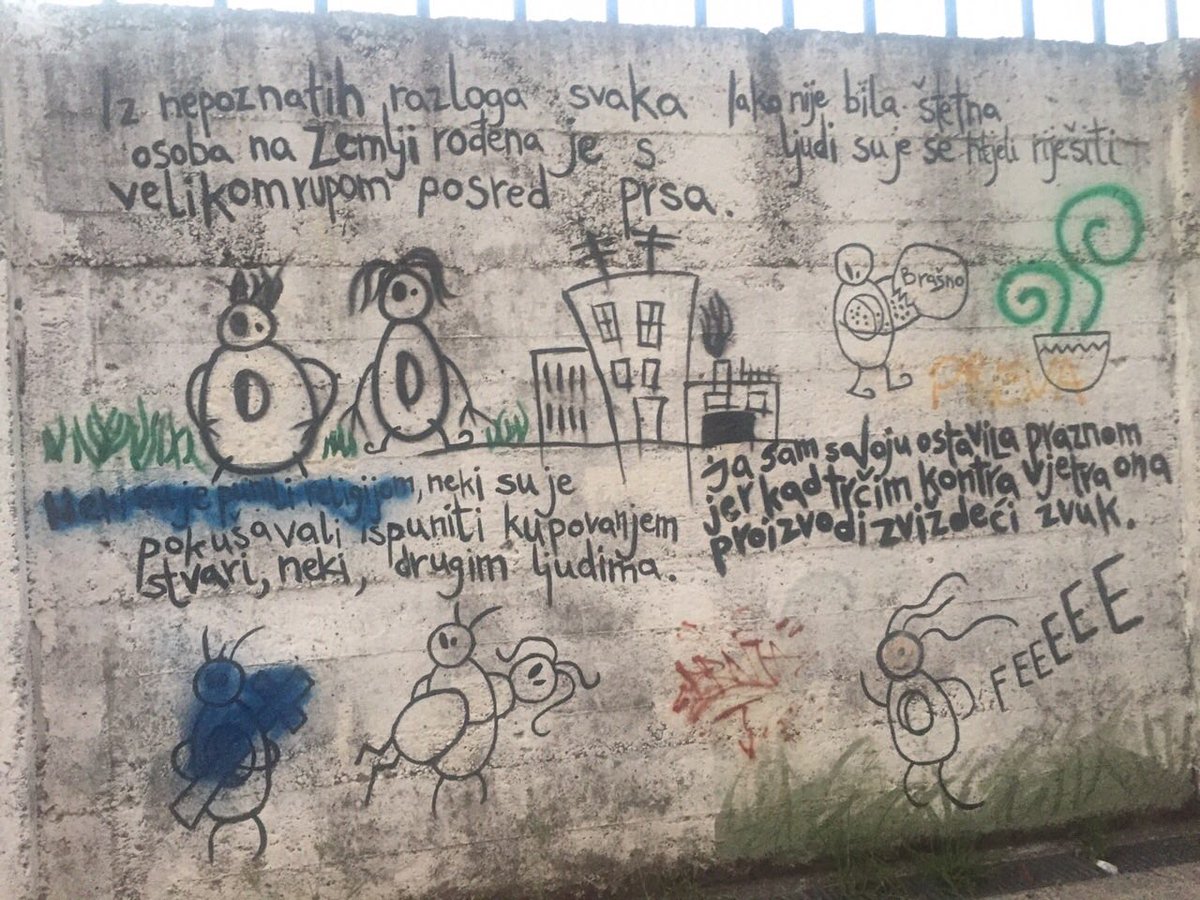 Iz nepoznatih razloga svaka
osoba na Zemlji rođena je s
velikom rupom posred prsa.
Iako nije bila štetna
ljudi su je se htjeli riješiti
Brašno
Neki su je punili religijom, neki su je
pokušavali ispuniti kupovanjem
stvari, neki, drugim ljudima.
ja sam svoju ostavila praznom
jer kad trčim kontra vjetra ona
proizvodi zvizdeći zvuk.
FEEEEEE